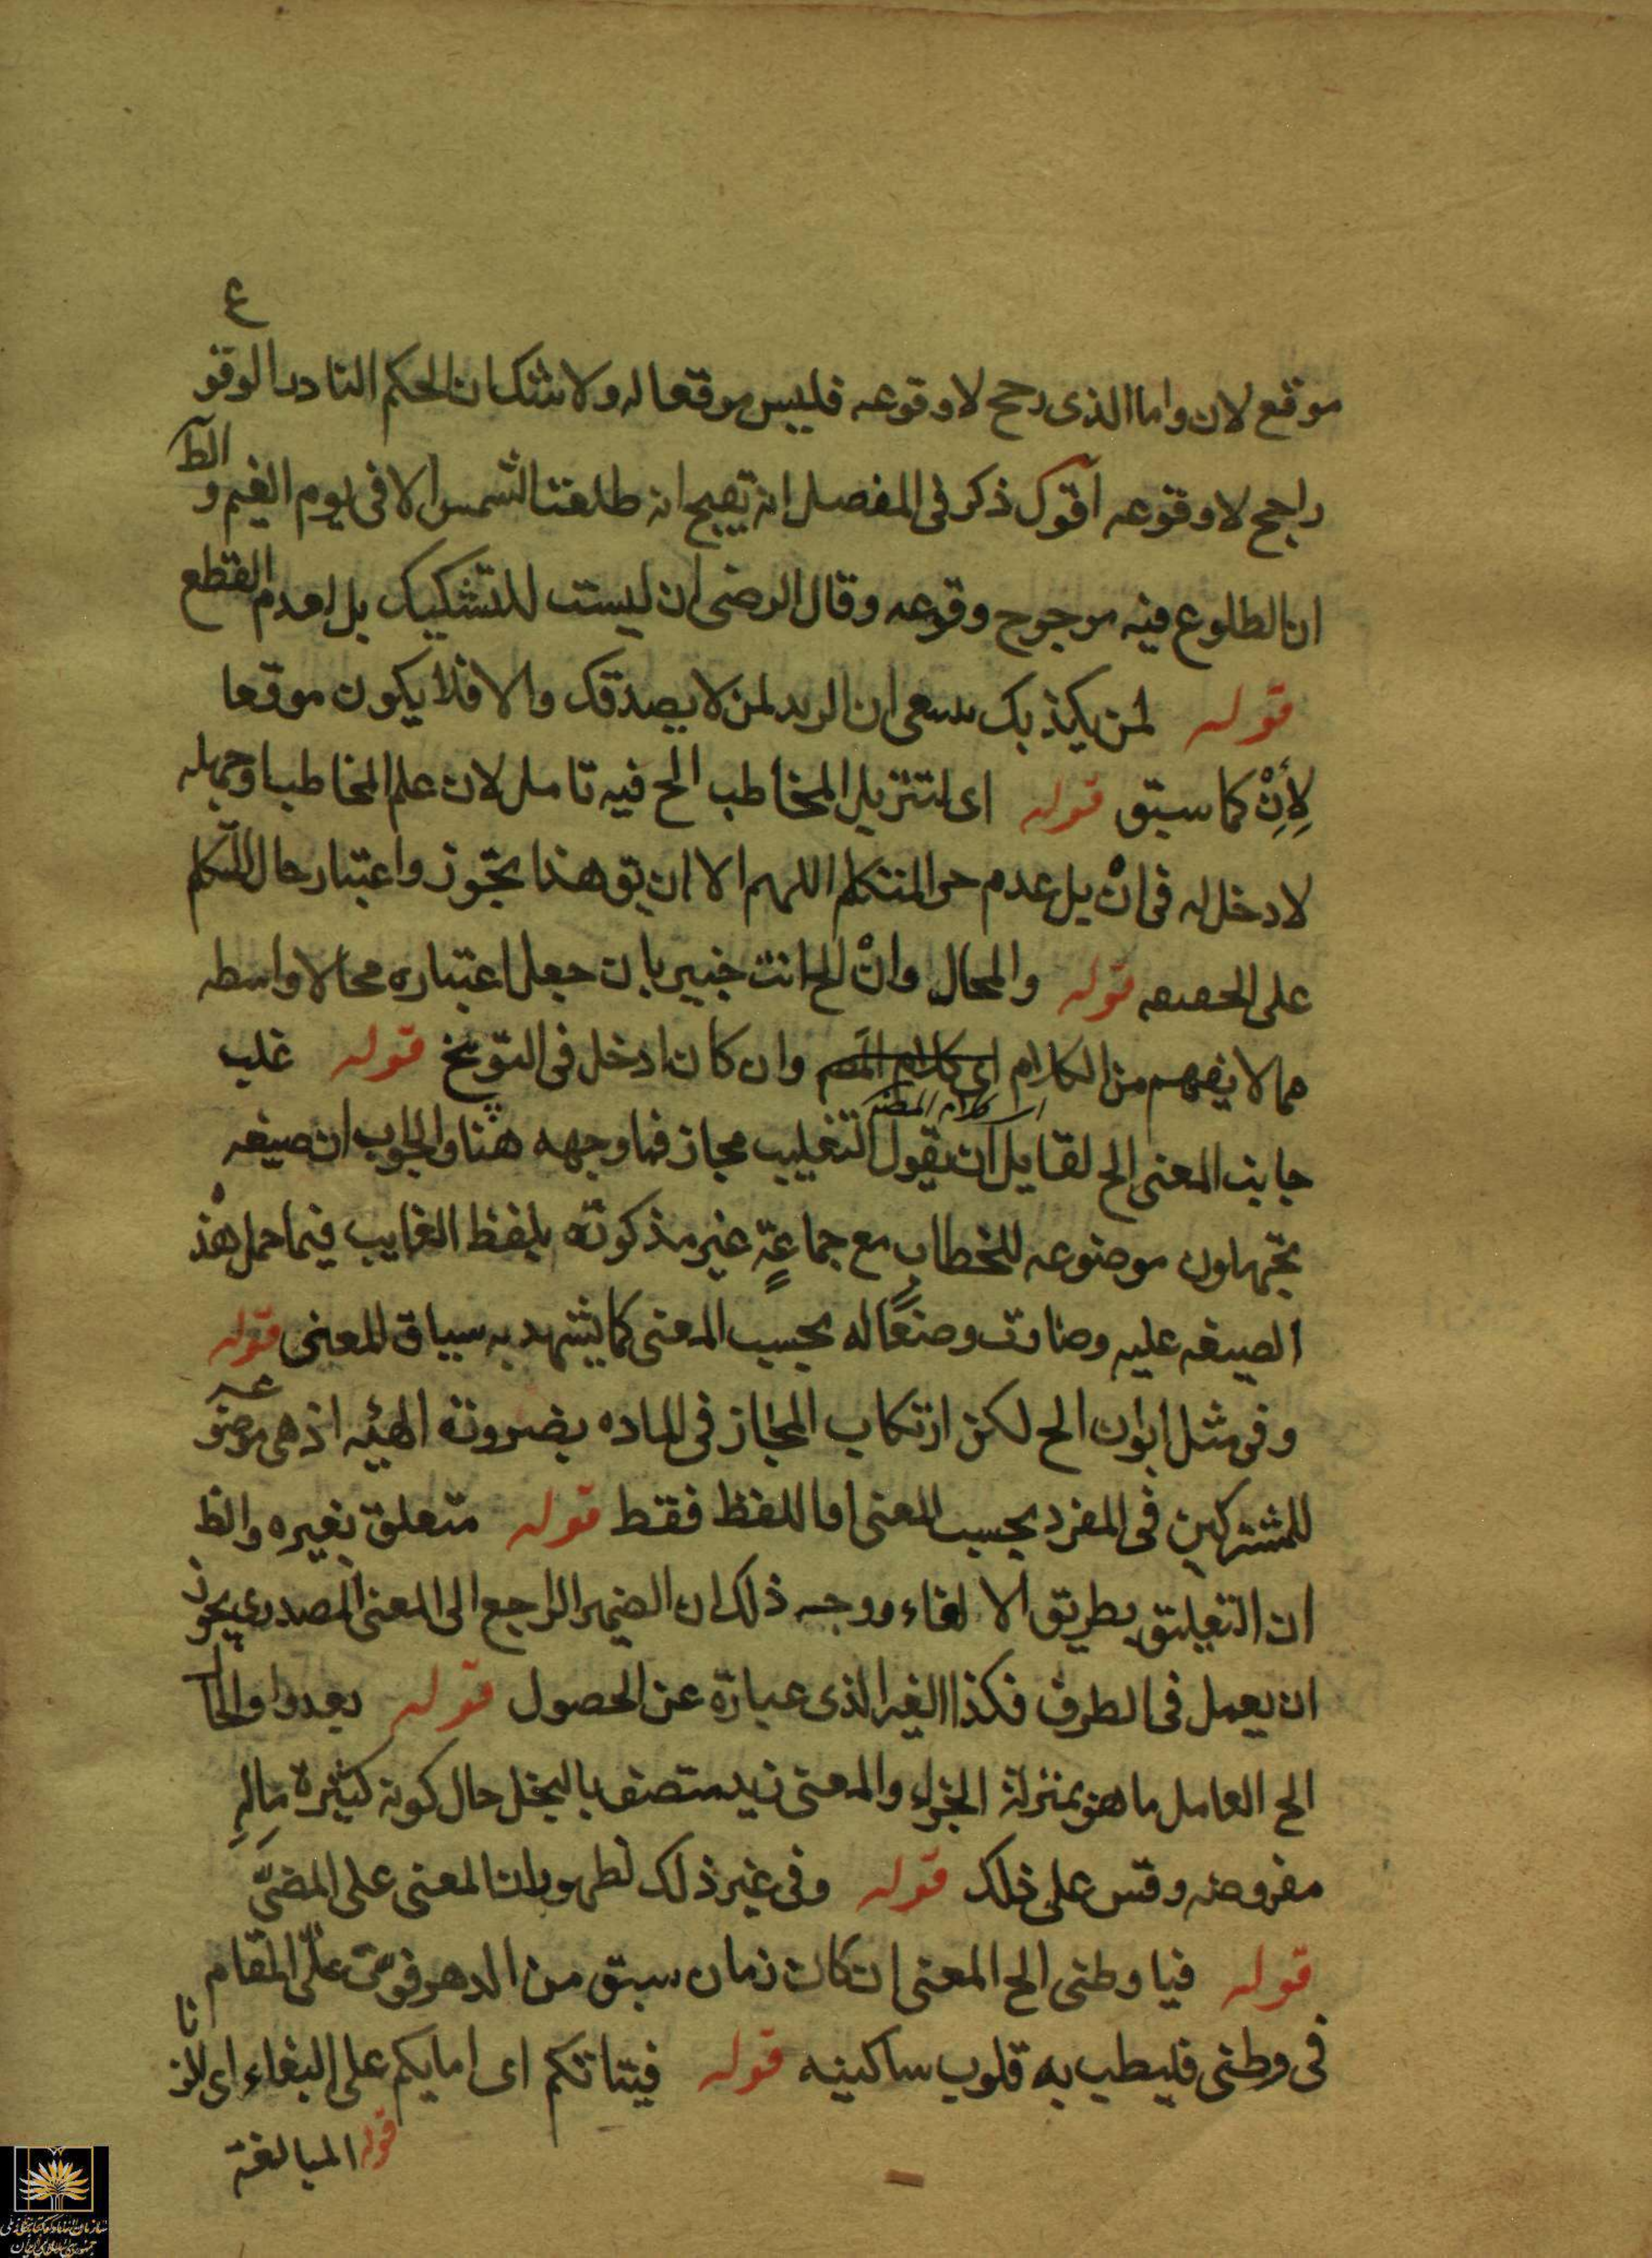 موقع لان واما الذى رجح لاوقوعه فليس موقعا له ولا شك ان الحكم النادر الوقوع
راجح لاوقوعه اقول ذكر فى المفصل انه يقبح ان طلعت الشمس الا فى يوم الغيم والظ
ان الطلوع فيه مرجوح وقوعه وقال الرضى ان ليست للتشكيك بل لعدم القطع
قوله لمن يكذبك ان لمن لا يصدقك والا فلا يكون موقعا
لأِنْ كما سبق قوله اى لتنزيل المخاطب الخ فيه تامل لان علم المخاطب وجهله
لا دخل له فى انْ بل عدم المتكلم اللهم الا ان يق هذا تجوز واعتبار حال المتكلم
على الحقيقه قوله والمحال وانْ الخ انت خبير بان جعل اعتباره محالا واسطه
مما لا يفهم من الكلام اى كلام المصـ وان كان ادخل فى التوبيخ قوله غلب
جانب المعنى الخ لقايل ان يقول التغليب مجاز فما وجهه هنا والجواب ان صيغه
تجهلون موضوعه للخطاب مع جماعةٍ غير مذكورة بلفظ الغايب فيما حمل هذه
الصيغه عليه وصارت وضعًا له بحسب المعنى كما يشهد به سياق المعنى قوله
وفى مثل ابوان الخ لكن ارتكاب المجاز فى الماده بضرورة الهيئه اذ هى موضوعه
للمشتركين فى المفرد بحسب المعنى اما للفظ فقط قوله متعلق بغيره والظ
ان التعليق بطريق الالغاء ووجه ذلك ان الضمير الراجع الى المعنى المصدرى يجوز
ان يعمل فى الطرف فكذا الغير الذى عبارة عن الحصول قوله
الخ العامل ما هو بمنزلة الجزاء والمعنى زيد متصف بالبخل حال كونه كثيرة مالهِ
مفروضه وقس على ذلك قوله وفى غير ذلك لظهور ان المعنى على المضىّ
قوله فيا وطنى الخ المعنى ان كان زمان سبق من الدهر فوتنى على المقام
فى وطنى فليطب به قلوب ساكنيه قوله فتياتكم اى امايكم على البغاء اى الزنا
قوله المبالغة